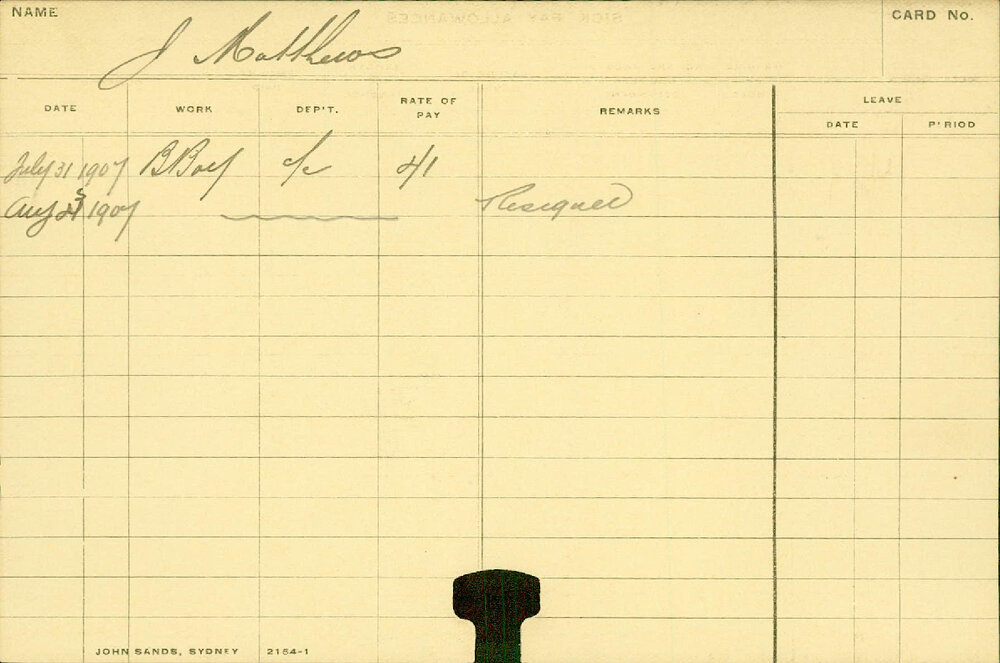 NAME
J Matthews
CARD No.
DATE WORK DEP'T. RATE OF PAY REMARKS LEAVE
DATE P'RIOD
July 31 1907 B Boy c/c 4/1
Aug 1907 Resigned
JOHN SANDS, SYDNEY 2154-1